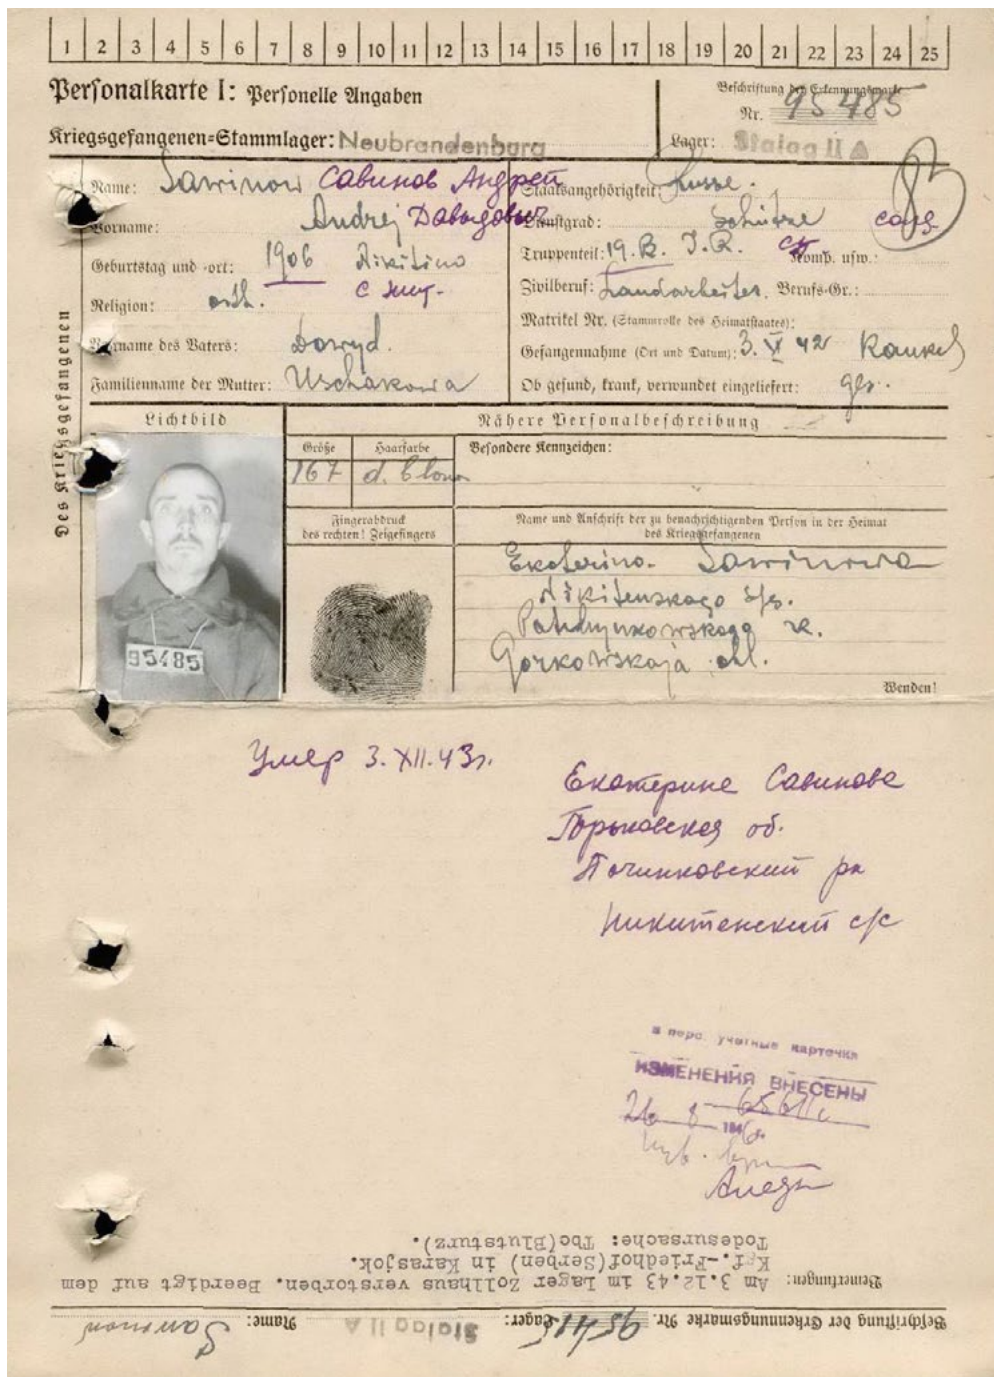 1 2 3 4 5 6 7 8 9 10 11 12 13 14 15 16 17 18 19 20 21 22 23 24 25
Personalkarte I: Personelle Angaben
Beschriftung der Erkennungsmarke
Nr. 95485
Kriegsgefangenen=Stammlager: Neubrandenburg
Lager: Stalag II A
Des Kriegsgefangenen
Name: Sawinow Савинов Андрей
Vorname: Andrej Давыдович
Geburtstag und =ort: 1906 Nikitino
Religion: orth.
Vorname des Vaters: Dawyd.
Familienname der Mutter: Uschakowa
Staatsangehörigkeit: Russe.
Dienstgrad: Schütze солд.
Truppenteil: 19. B. I.R. Komp. usw.:
Zivilberuf: Landarbeiter. Berufs=Gr.:
Matrikel Nr. (Stammrolle des Heimatstaates):
Gefangennahme (Ort und Datum): 3. VI 42
Ob gesund, krank, verwundet eingeliefert: ges.
83
Lichtbild
Nähere Personalbeschreibung
Größe Haarfarbe Besondere Kennzeichen:
167 d. blond
Fingerabdruck
des rechten! Zeigefingers
Name und Anschrift der zu benachrichtigenden Person in der Heimat
des Kriegsgefangenen
95485
Ekaterino. Sawinowa
Nikitenskago s/s.
Gorkowskaja obl.
Wenden!
Умер 3.XII.43г.
Екатерине Савинова
Горьковская об.
Починковский рн
Никитенский с/с
в перс. учетные карточки
ИЗМЕНЕНИЯ ВНЕСЕНЫ
26 8
Bemerkungen: Am 3.12.43 im Lager Zollhaus verstorben. Beerdigt auf dem
Kgf.-Friedhof(Serben) in Karasjok.
Todesursache: Tbc(Blutsturz).
Beschriftung der Erkennungsmarke Nr. 95485 Lager: Stalag II A Name: Sawinow